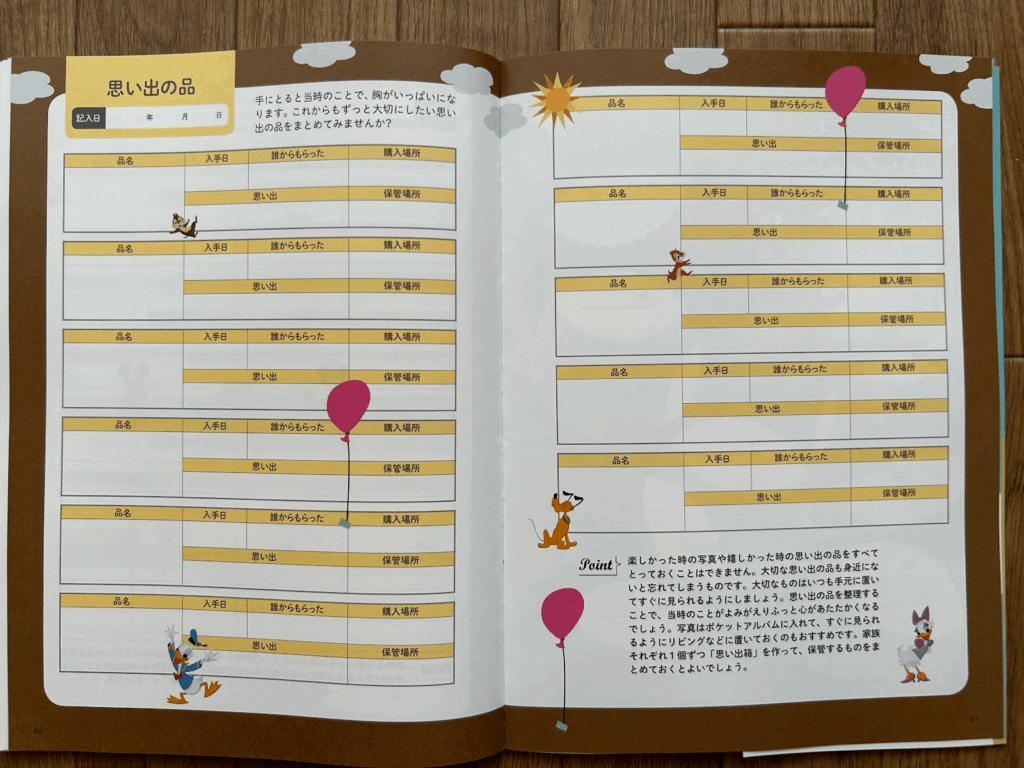 思い出の品
記入日 年 月 日
手にとると当時のことで、胸がいっぱいにな
ります。これからもずっと大切にしたい思い
出の品をまとめてみませんか？
品名 入手日 誰からもらった 購入場所
思い出 保管場所
品名 入手日 誰からもらった 購入場所
思い出 保管場所
品名 入手日 誰からもらった 購入場所
思い出 保管場所
品名 入手日 誰からもらった 購入場所
思い出 保管場所
品名 入手日 誰からもらった 購入場所
思い出 保管場所
品名 入手日 誰からもらった 購入場所
思い出 保管場所
60
品名 入手日 誰からもらった 購入場所
思い出 保管場所
品名 入手日 誰からもらった 購入場所
思い出 保管場所
品名 入手日 誰からもらった 購入場所
思い出 保管場所
品名 入手日 誰からもらった 購入場所
思い出 保管場所
品名 入手日 誰からもらった 購入場所
思い出 保管場所
Point
楽しかった時の写真や嬉しかった時の思い出の品をすべて
とっておくことはできません。大切な思い出の品も身近にな
いと忘れてしまうものです。大切なものはいつも手元に置い
てすぐに見られるようにしましょう。思い出の品を整理する
ことで、当時のことがよみがえりふっと心があたたかくなる
でしょう。写真はポケットアルバムに入れて、すぐに見られ
るようにリビングなどに置いておくのもおすすめです。家族
それぞれ1個ずつ「思い出箱」を作って、保管するものをま
とめておくとよいでしょう。
61